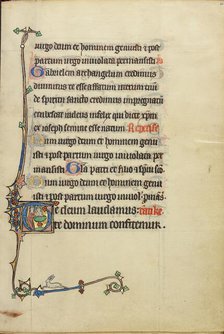 uirgo deum et hominem genuisti et post
partum uirgo inuiolata permansisti
Gabrielem archangelum credimus
diuinitus te esse affatum uterum tuum
de spiritu sancto credimus impregnatum
erubescat iudeus infelix qui dicit xpm
ex ioseph semine esse natum
uirgo deum et hominem genuisti
et post partum uirgo inuiolata per
mansisti Gloria patri et filio et spiritui sancto
uirgo deum et hominem
Te deum laudamus: te
dominum confitemur.